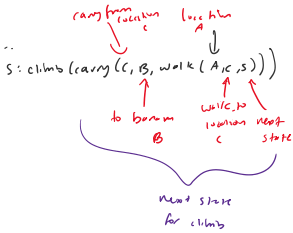 carry from
location
C
location
A
S: climb(carry(C, B, walk(A, C, S)))
to banana
B
A
walk_to
location
C
next
state
next state
for climb